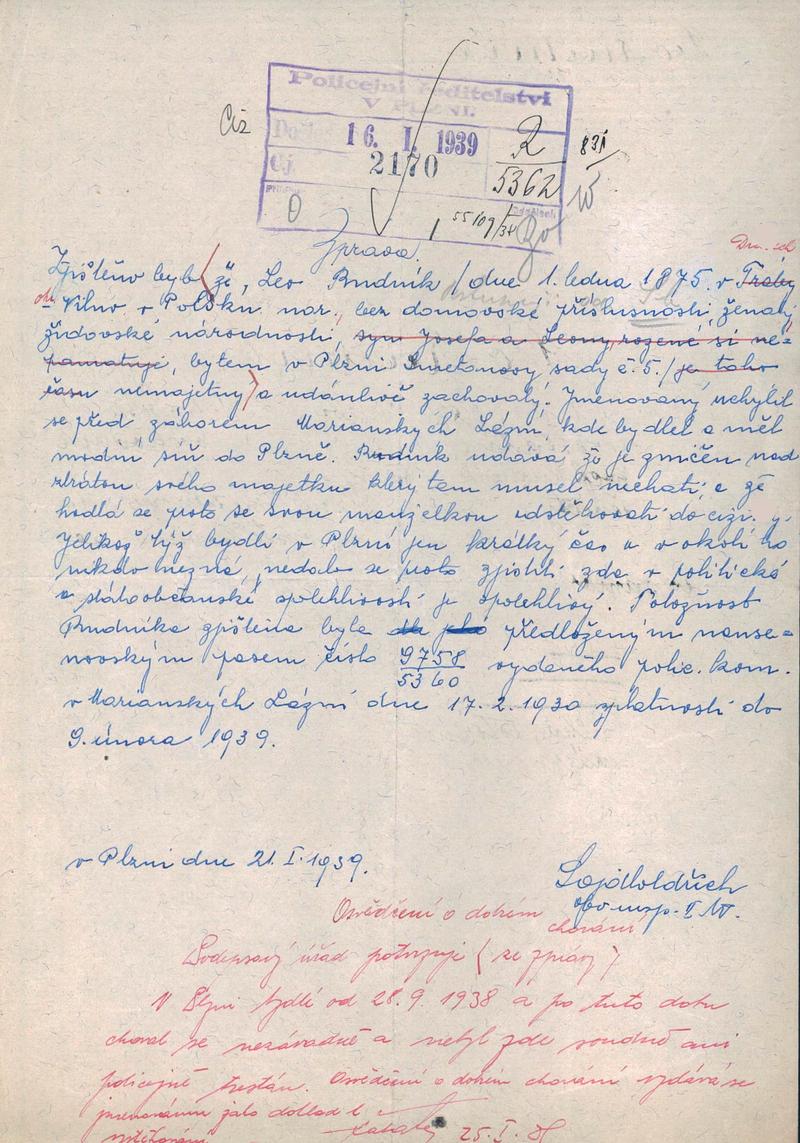 Policejní ředitelství
V PLZNI.
Čís
Došlo 16. I. 1939
R
831
Čj. 2170
5362
0
55109/34
Zpráva.
Zjištěno bylo, že Leo Rudník / dne 1. ledna 1875 v
Vilno v Polsku nar., bez domovské příslušnosti, ženatý
židovské národnosti, syn Josefa a Leony, rozené si ne=
pamatuje, bytem v Plzni Smetanovy sady č. 5. / je toho
času nemajetný a udánlivě zachovalý. Jmenovaný uchýlil
se před záborem Marianských Lázní, kde bydlel a měl
modní síň do Plzně. Rudník udává že je zničen nad
ztrátou svého majetku který tam musel nechati, a že
hodlá se proto se svou manželkou odstěhovati do ciziny.
Jelikož týž bydlí v Plzni jen krátký čas a v okolí ho
nikdo nezná, nedalo se proto zjistiti zda v politické
a státoobčanské spolehlivosti je spolehlivý. Totožnost
Rudníka zjištěna byla předloženým nanse=
novským pasem číslo 9758/5360 vydaného polic. kom.
v Marianských Lázní dne 17. 2. 1930 s platností do
9. února 1939.
v Plzni dne 21. I. 1939.
Osvědčení o dobrém
chování
úřad potvrzuje (ze zprávy)
V Plzni bydlí od 28. 9. 1938 a po tuto dobu
choval se nezávadně a nebyl zde soudně ani
policejně trestán. Osvědčení o dobrém chování vydává se
jmenovanému jako doklad k
vystěhování.
25. I. 39